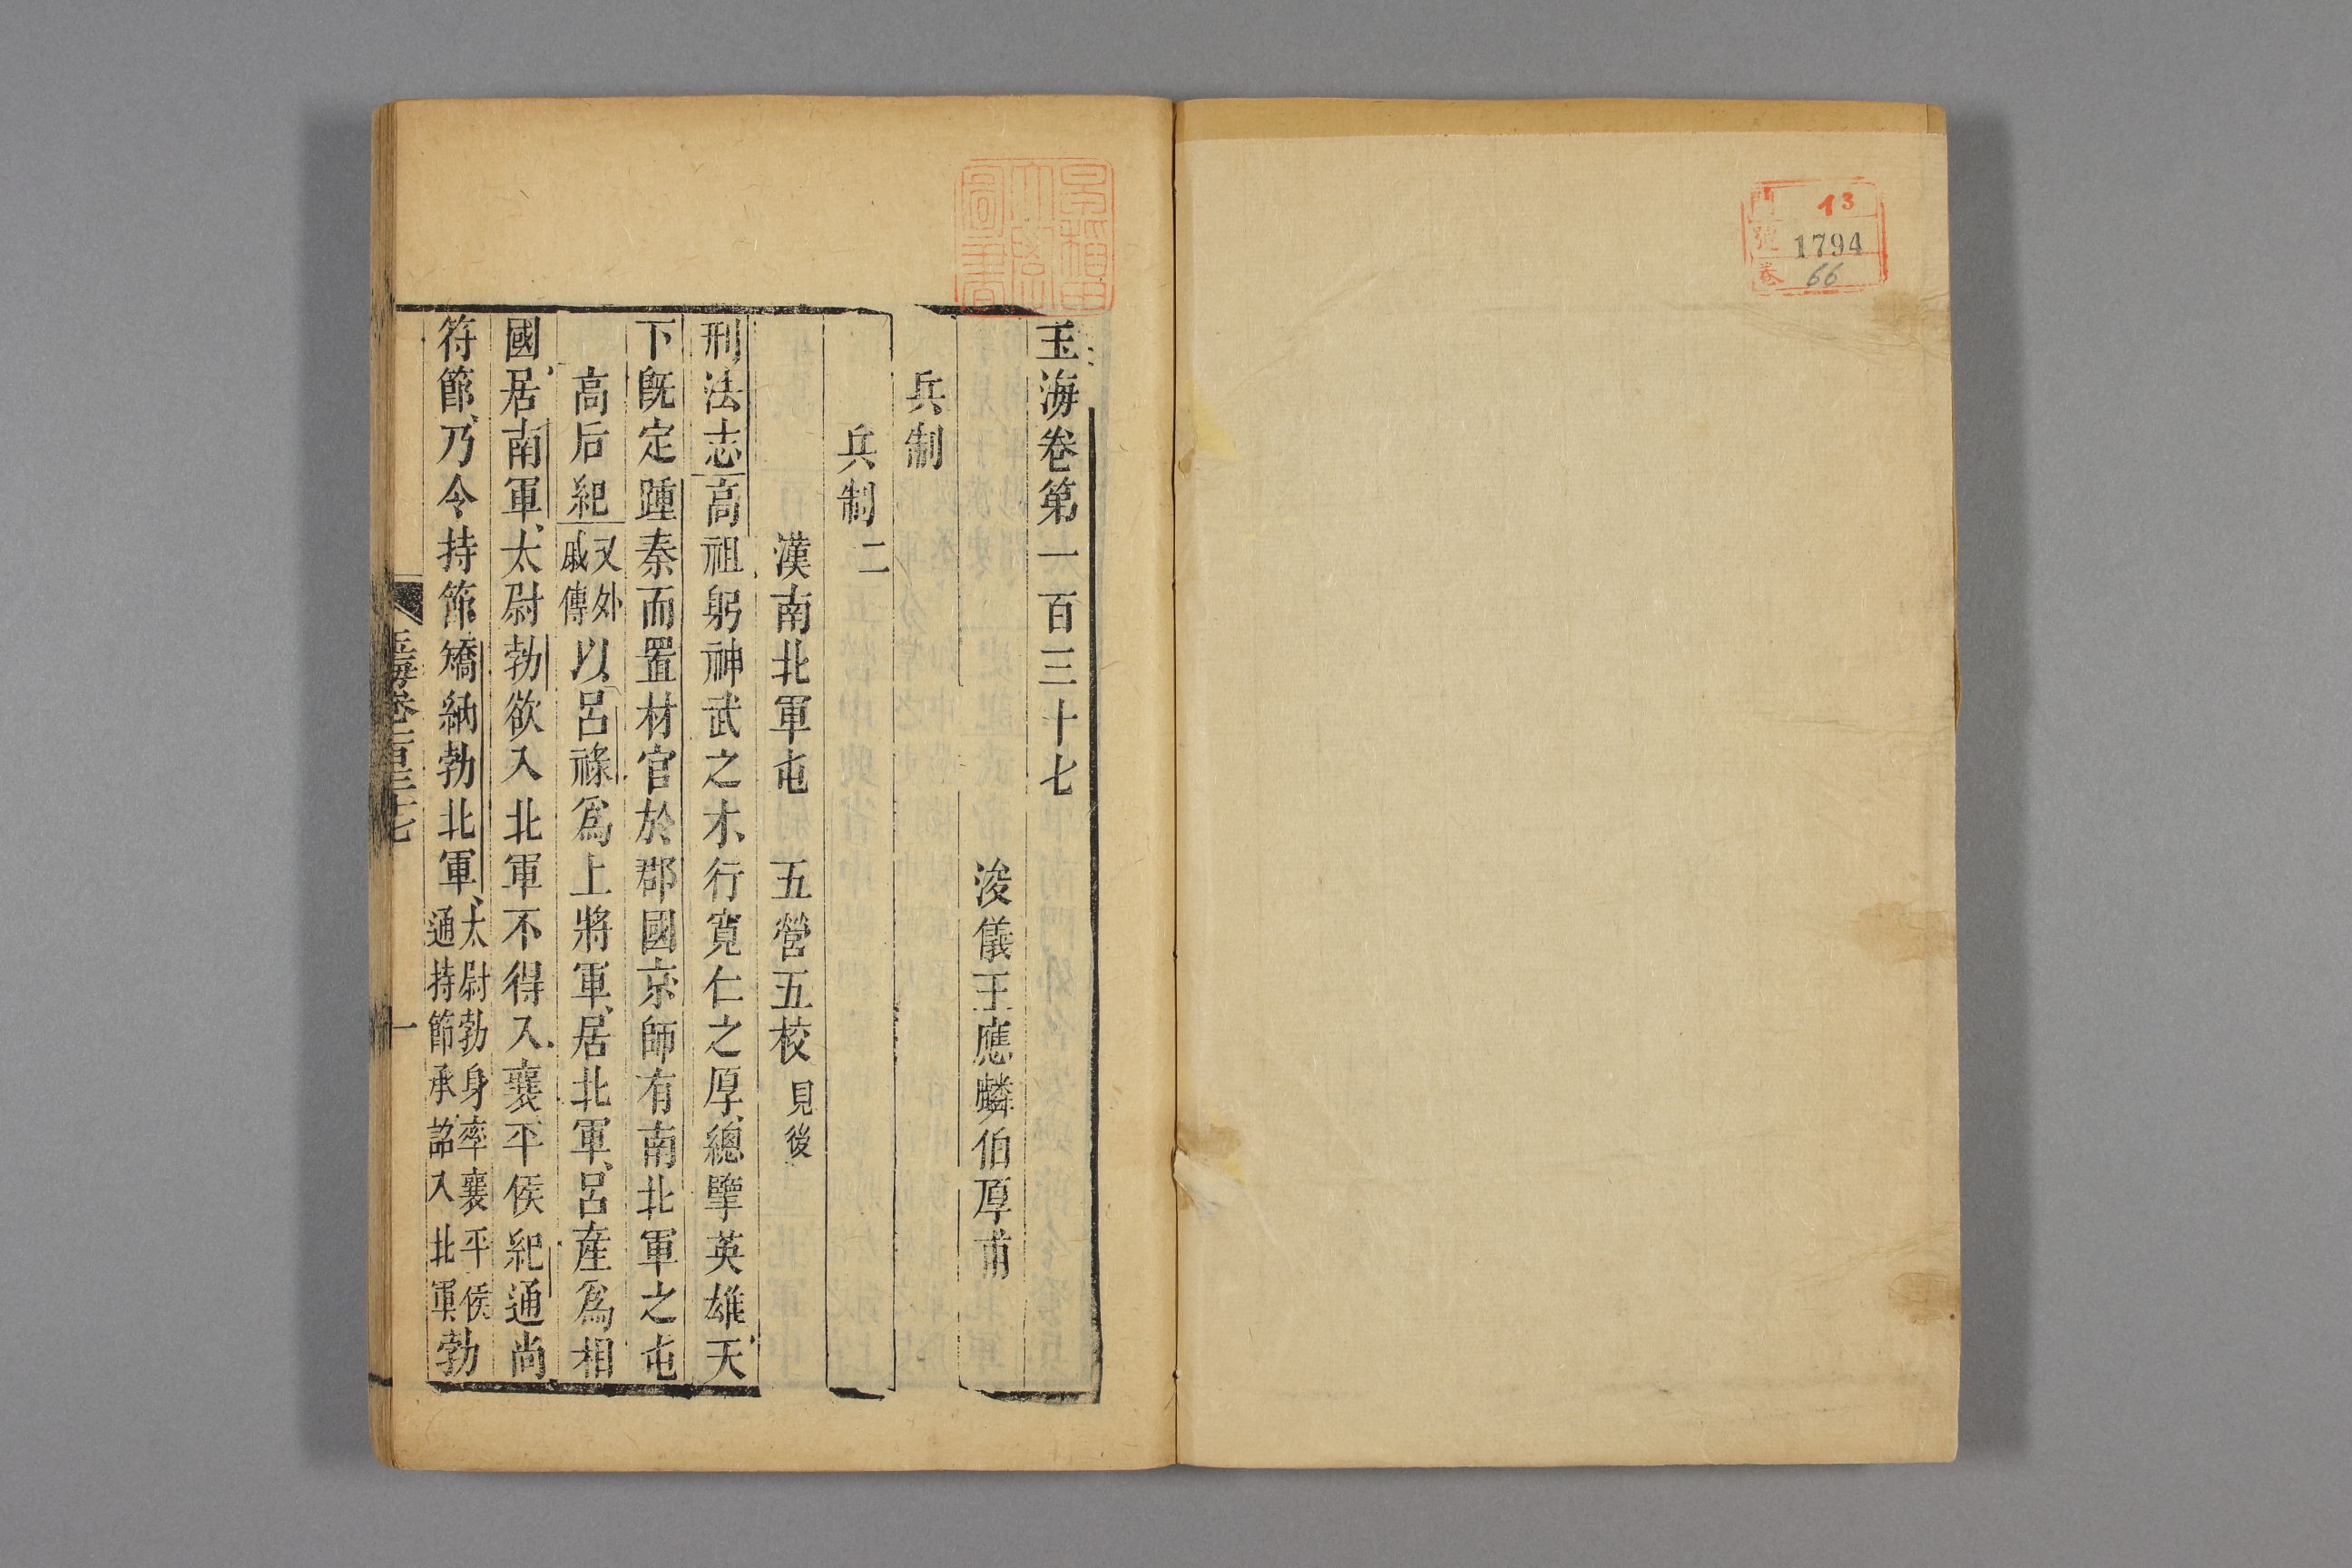 門 13
號 1794
卷 66
早稲田
大學
圖書
玉海卷第一百三十七
浚儀王應麟伯厚甫
兵制
兵制二
漢南北軍屯 五營五校 見後
刑法志高祖躬神武之才、行寬仁之厚、總擥英雄天
下旣定踵秦而置材官於郡國京師有南北軍之屯
高后紀又外戚傳以呂祿爲上將軍、居北軍、呂產爲相
國、居南軍、太尉勃欲入北軍不得入襄平侯紀通尚
符節、乃令持節矯納勃北軍、太尉勃身率襄平侯通持節承詔入北軍勃
玉海卷一百三十七
一